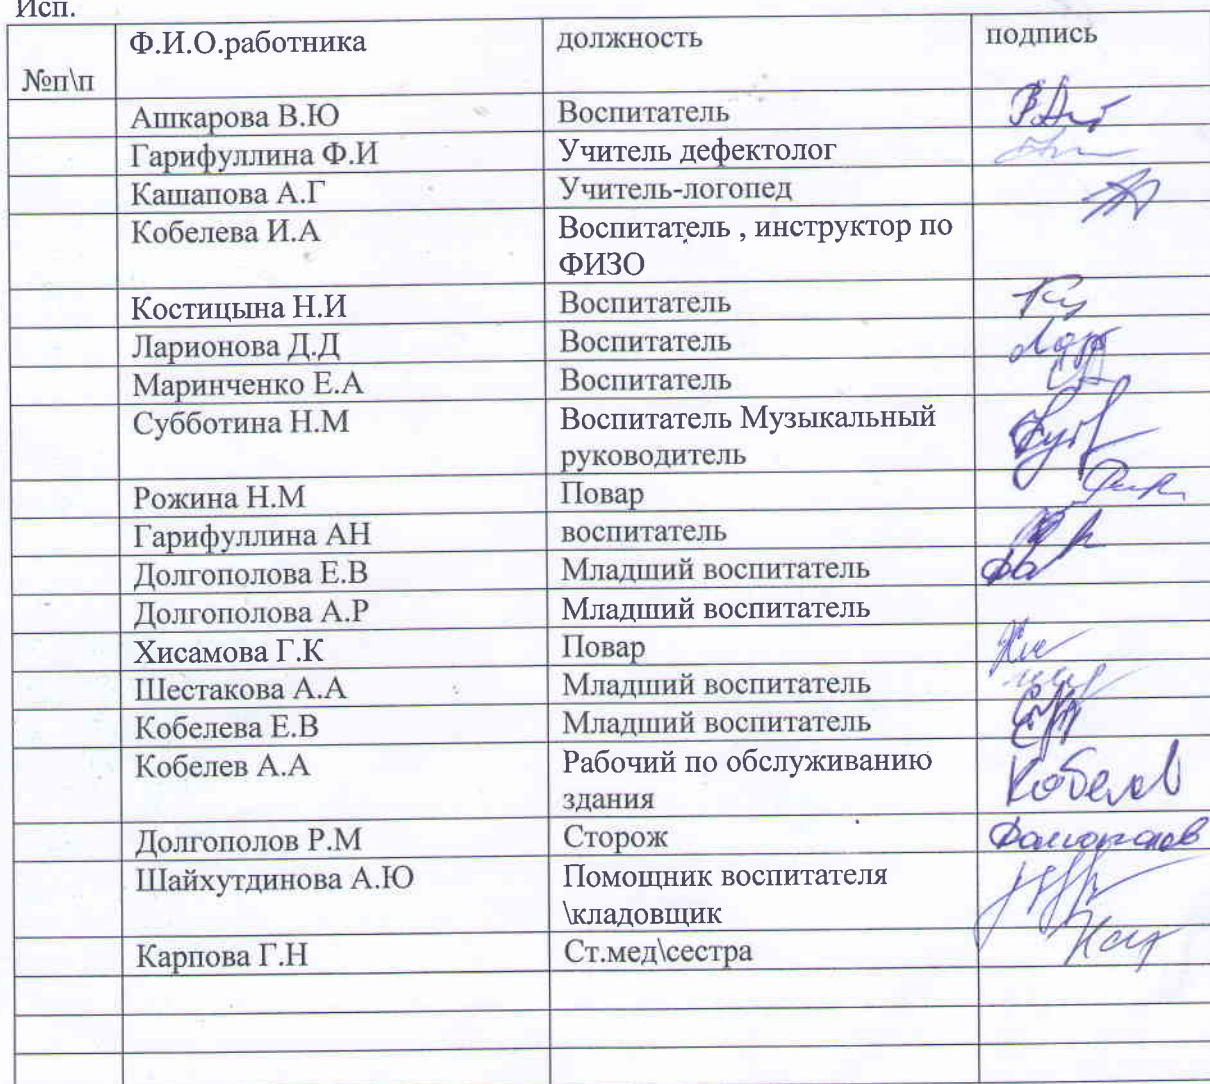 Исп.
№п\п Ф.И.О.работника должность подпись
Ашкарова В.Ю Воспитатель
Гарифуллина Ф.И Учитель дефектолог
Кашапова А.Г Учитель-логопед
Кобелева И.А Воспитатель , инструктор по
ФИЗО
Костицына Н.И Воспитатель
Ларионова Д.Д Воспитатель
Маринченко Е.А Воспитатель
Субботина Н.М Воспитатель Музыкальный
руководитель
Рожина Н.М Повар
Гарифуллина АН воспитатель
Долгополова Е.В Младший воспитатель
Долгополова А.Р Младший воспитатель
Хисамова Г.К Повар
Шестакова А.А Младший воспитатель
Кобелева Е.В Младший воспитатель
Кобелев А.А Рабочий по обслуживанию Кобелев
здания
Долгополов Р.М Сторож Долгополов
Шайхутдинова А.Ю Помощник воспитателя
\кладовщик
Карпова Г.Н Ст.мед\сестра